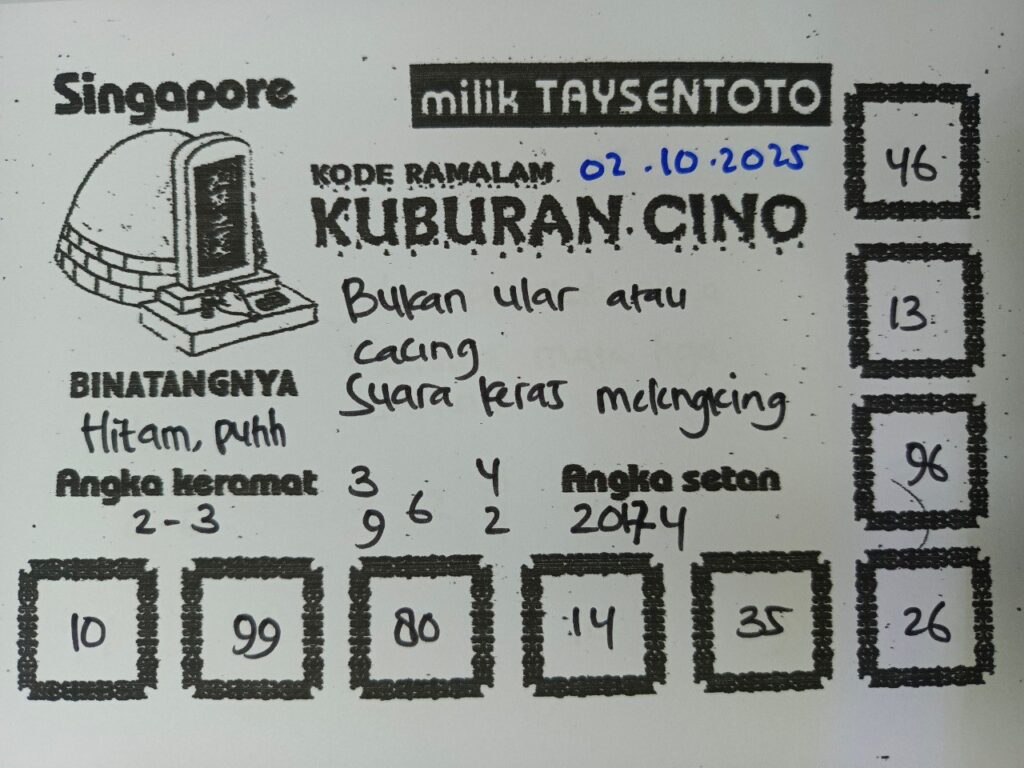 Singapore
milik TAYSENTOTO
KODE RAMALAM 02.10.2025
KUBURAN CINO
Bukan ular atau
cacing
Suara keras melengking
BINATANGNYA
Hitam, putih
Angka keramat
2 - 3
3 4
6
9 2
Angka setan
20174
46
13
96
26
10 99 80 14 35